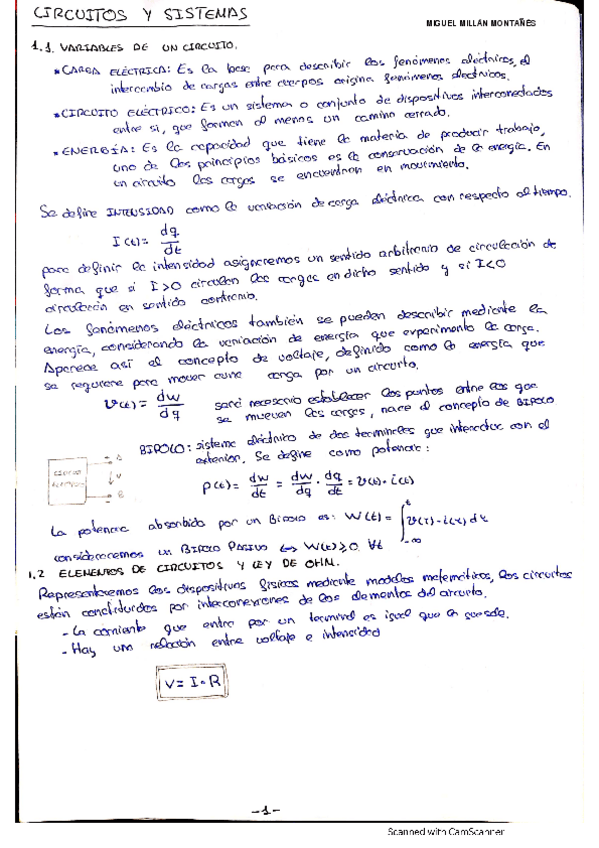 CIRCUITOS Y SISTEMAS
MIGUEL MILLÁN MONTAÑÉS
1.1. VARIABLES DE UN CIRCUITO.
* CARGA ELÉCTRICA: Es la base para describir los fenómenos eléctricos, el
intercambio de cargas entre cuerpos origina fenómenos electricos.
* CIRCUITO ELÉCTRICO: Es un sistema o conjunto de dispositivos interconectados
entre si, que formen al menos un camino cerrado.
* ENERGÍA: Es la capacidad que tiene la materia de producir trabajo,
uno de los principios básicos es la conservación de la energía. En
un circuito las cargas se encuentran en movimiento.
Se define INTENSIDAD como la variación de carga eléctrica con respecto al tiempo.
I(t) = dq/dt
para definir la intensidad asignaremos un sentido arbitrario de circulación de
forma que si I>0 circulan las cargas en dicho sentido y si I<0
circularán en sentido contrario.
Los fenómenos eléctricos también se pueden describir mediante la
energía, considerando la variación de energía que experimenta la carga.
Aparece así el concepto de voltaje, definido como la energía que
se requiere para mover una carga por un circuito.
v(t) = dw/dq será necesario establecer los puntos entre los que
se mueven las cargas, nace el concepto de BIPOLO
BIPOLO: sistema eléctrico de dos terminales que interactua con el
exterior. Se define como potencia:
CIRCUITO
ELÉCTRICO
A
V
B
p(t) = dw/dt = dw/dq · dq/dt = v(t) · i(t)
La potencia absorbida por un Bipolo es: W(t) = ∫ t -∞ v(τ) · i(τ) dτ
consideraremos un BIPOLO PASIVO ⇔ W(t) ≥ 0 ∀t
1.2 ELEMENTOS DE CIRCUITOS Y LEY DE OHM.
Representaremos los dispositivos físicos mediante modelos matemáticos, los circuitos
están constituidos por interconexiones de los elementos del circuito.
- La corriente que entra por un terminal es igual que la que sale.
- Hay una relación entre voltaje e intensidad
V = I · R
-1-
Scanned with CamScanner